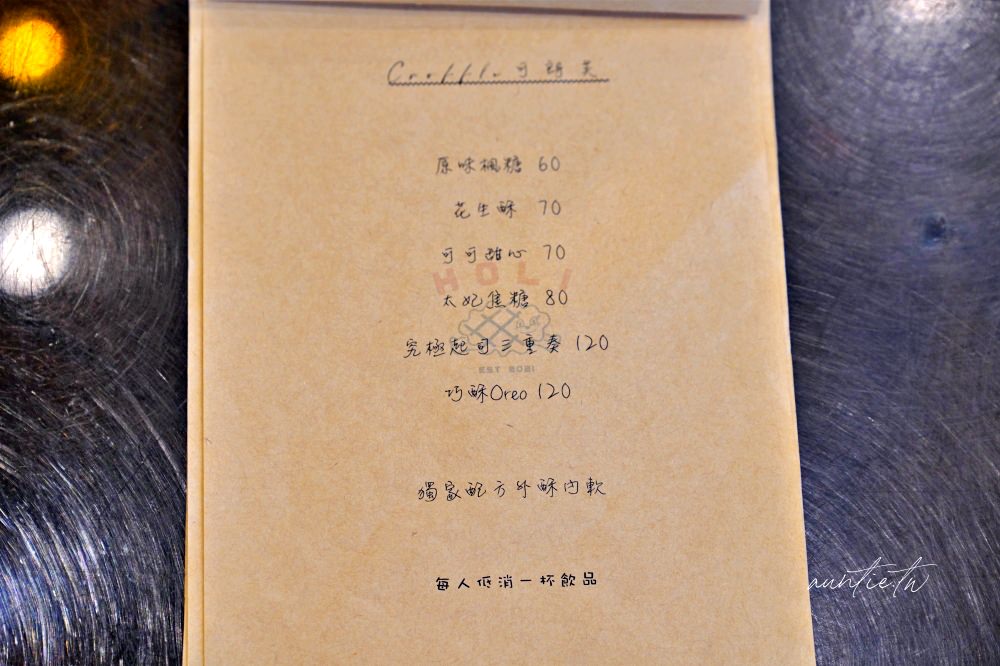 Croffle可頌芙
原味楓糖 60
花生酥 70
可可甜心 70
HOLI
太妃焦糖 80
究極起司三重奏 120
EST 2021
巧酥Oreo 120
獨家配方外酥內軟
每人低消一杯飲品
auntie.tw